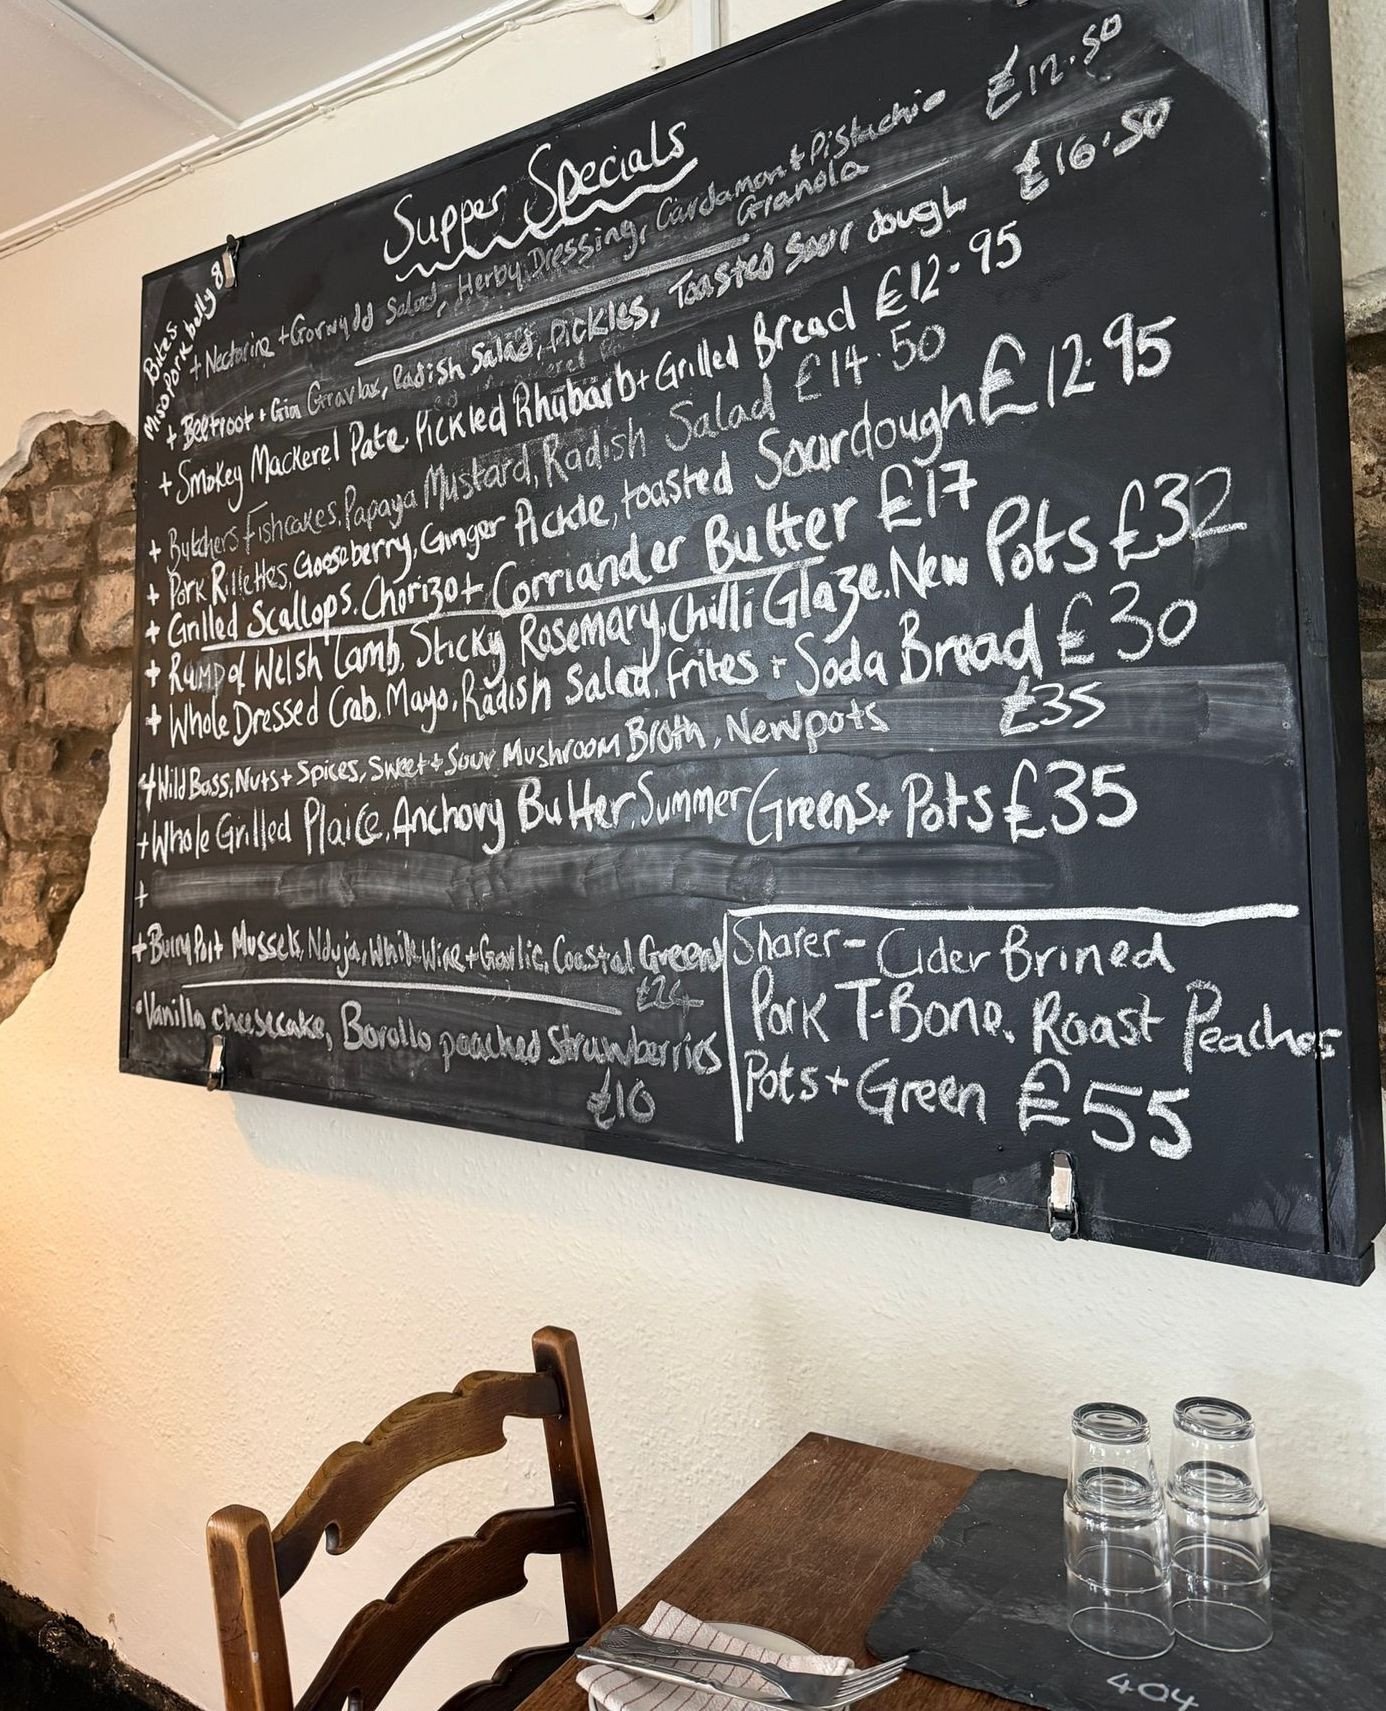 Supper Specials
Bites
Miso Pork belly 8
+ Nectarine + Gorwydd Salad, Herby Dressing, Cardamon + Pistachio Granola £12.50
+ Beetroot + Gin Gravlax, Radish Salad, Pickles, Toasted Sour dough £16.50
+ Smokey Mackerel Pate, Pickled Rhubarb + Grilled Bread £12.95
+ Butchers Fishcakes, Papaya Mustard, Radish Salad £14.50
+ Pork Rillettes, Gooseberry, Ginger Pickle, toasted Sourdough £12.95
+ Grilled Scallops, Chorizo + Corriander Butter £17
+ Rump of Welsh Lamb, Sticky Rosemary, Chilli Glaze, New Pots £32
+ Whole Dressed Crab, Mayo, Radish Salad, Frites + Soda Bread £30
+ Wild Bass, Nuts + Spices, Sweet + Sour Mushroom Broth, New pots £35
+ Whole Grilled Plaice, Anchovy Butter, Summer Greens + Pots £35
+
+ Burry Port Mussels, Nduja, White Wine + Garlic, Coastal Greens
£24
• Vanilla cheesecake, Borollo poached Strawberries
£10
Sharer - Cider Brined
Pork T-Bone, Roast Peaches
Pots + Green £55
404